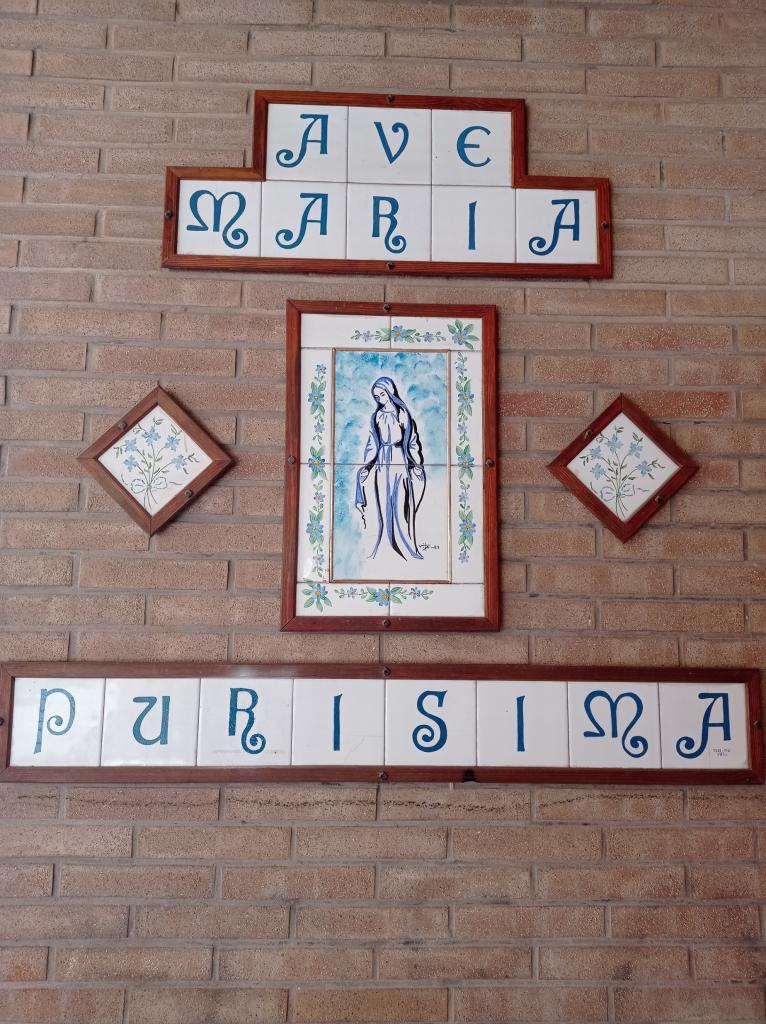 AVE
MARIA
PURISIMA